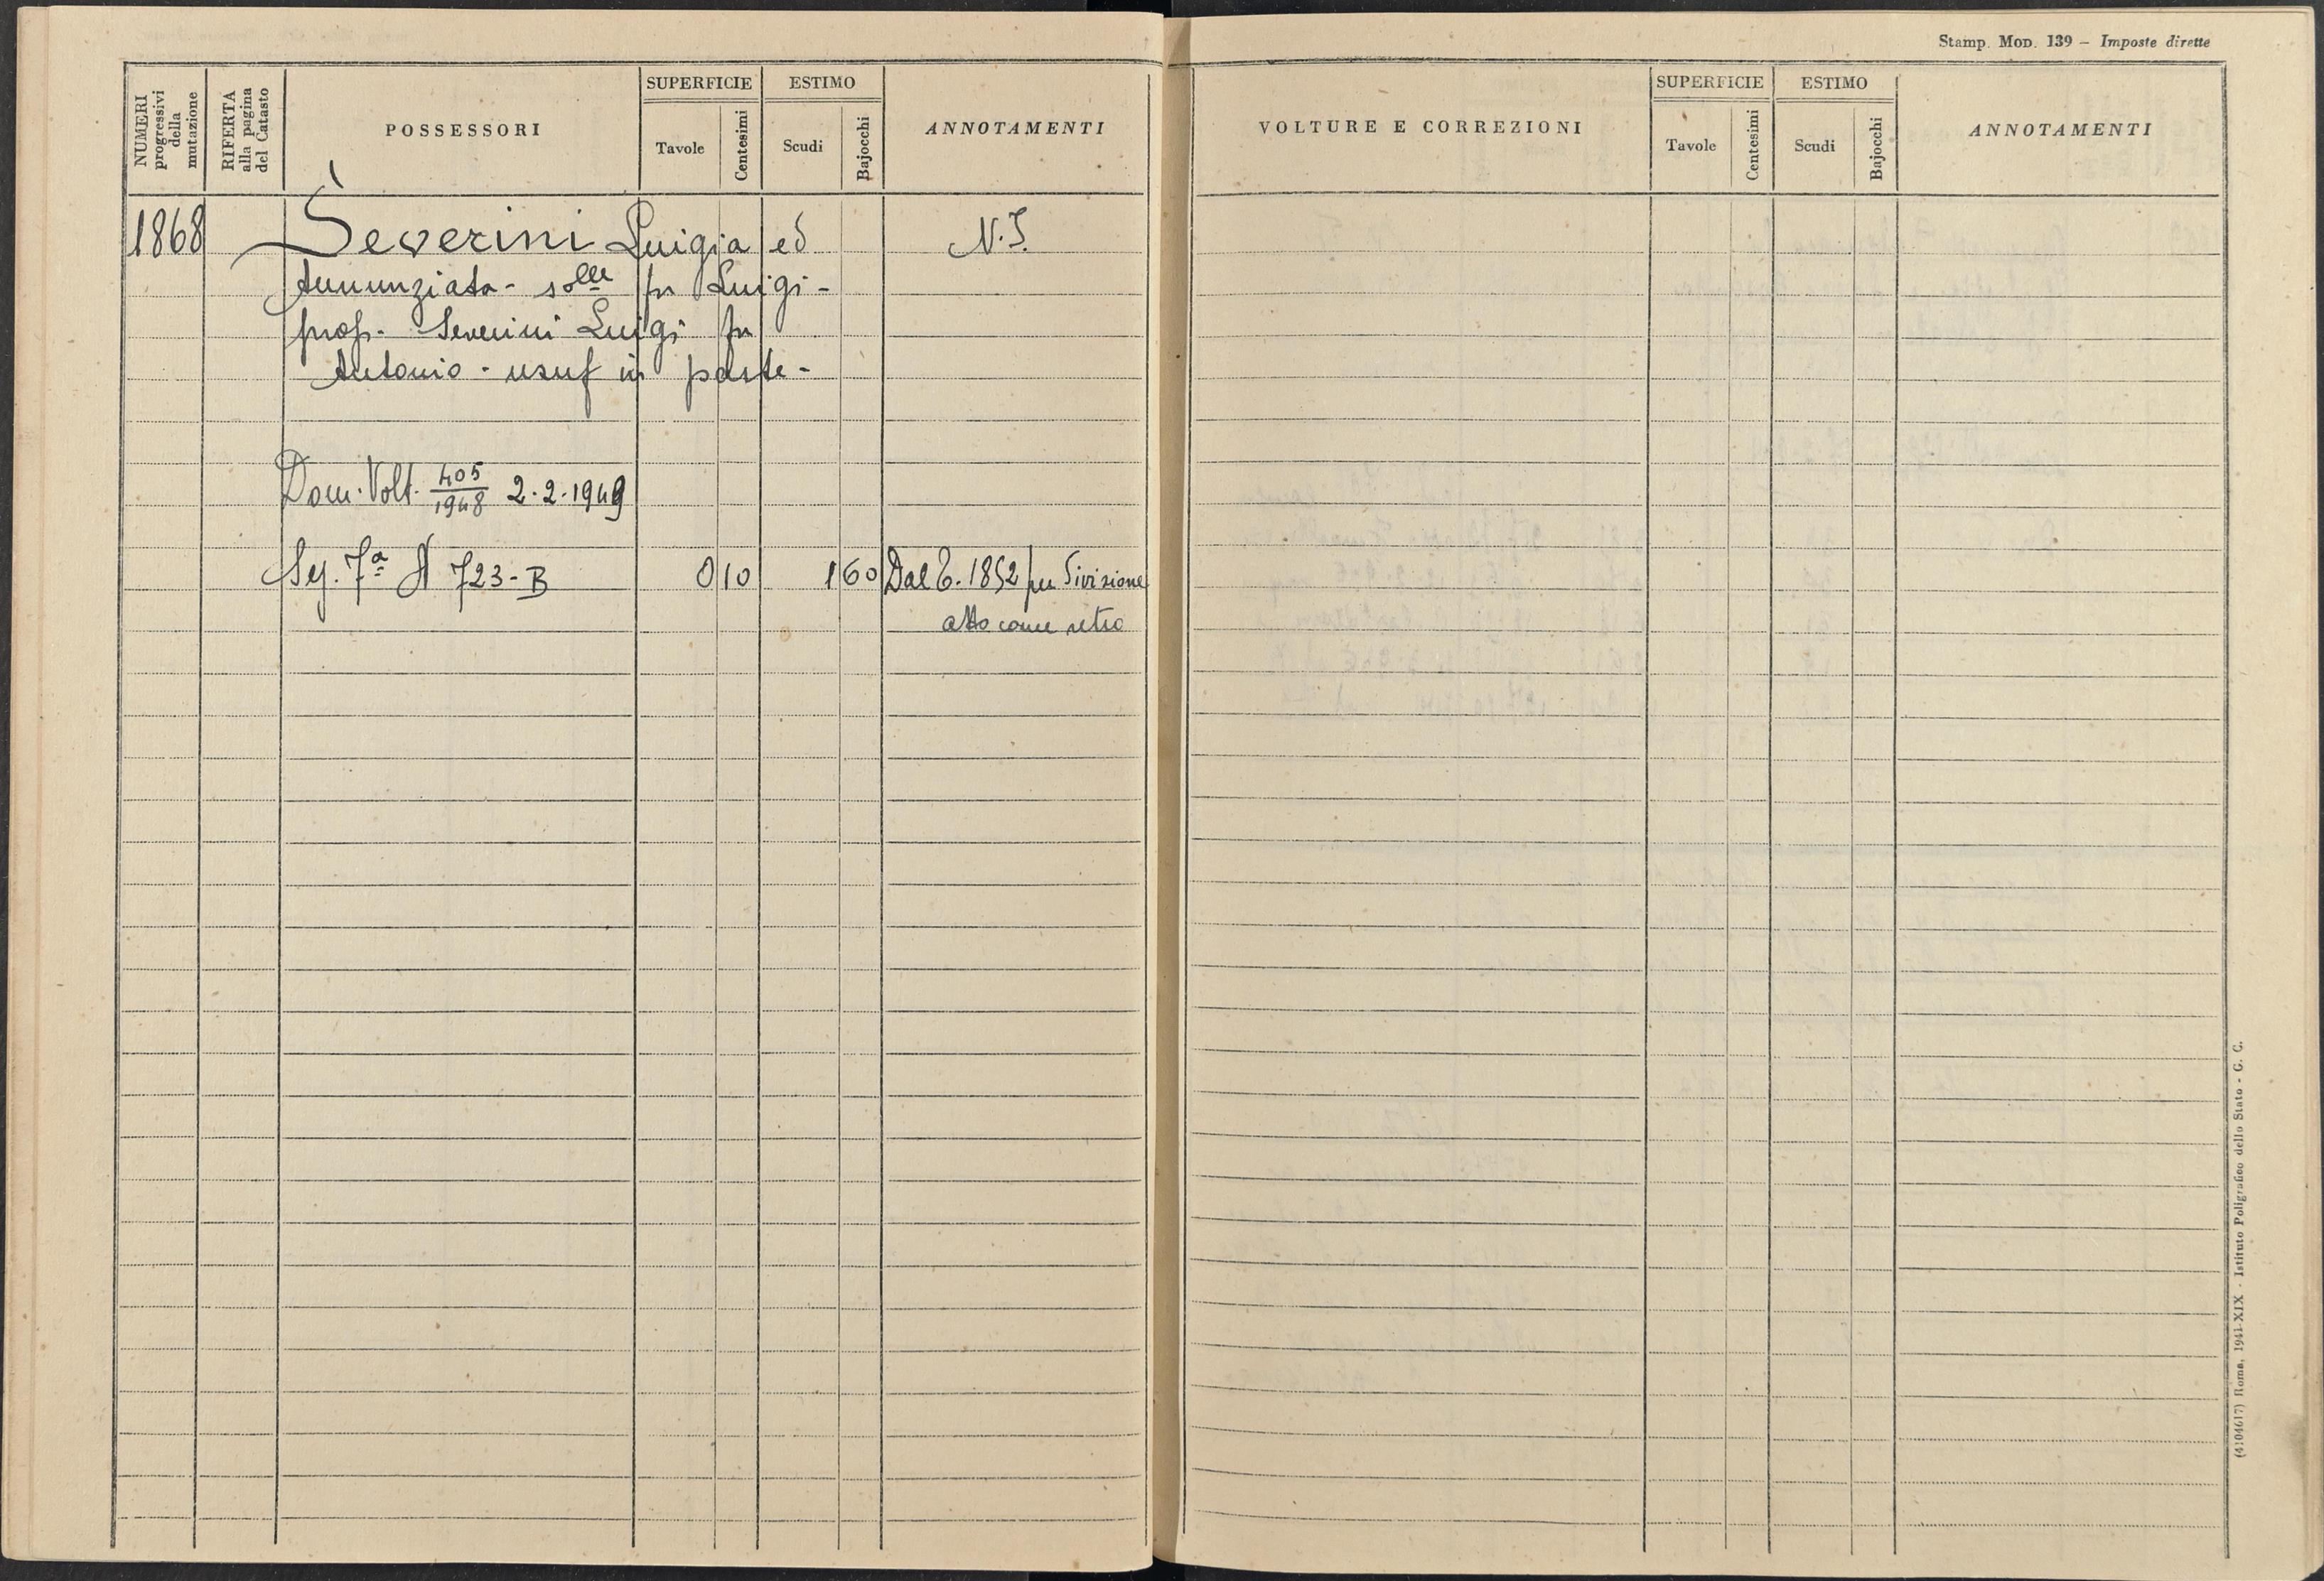 Stamp. Mod. 139 – Imposte dirette
NUMERI progressivi della mutazione
RIFERTA alla pagina del Catasto
POSSESSORI
SUPERFICIE
Tavole
Centesimi
ESTIMO
Scudi
Bajocchi
ANNOTAMENTI
VOLTURE E CORREZIONI
SUPERFICIE
Tavole
Centesimi
ESTIMO
Scudi
Bajocchi
ANNOTAMENTI
1868 Severini Luigia ed N.I.
Annunziata - solle fu Luigi -
prop. Severini Luigi fu
Antonio - usuf in parte -
Dom. Volt. 405/1948 2.2.1949
Sez. 7ª N 723-B 0 10 1 60 Dal C. 1852 per Divisione
atto come retro
(4104617) Roma, 1941-XIX - Istituto Poligrafico dello Stato - G. C.